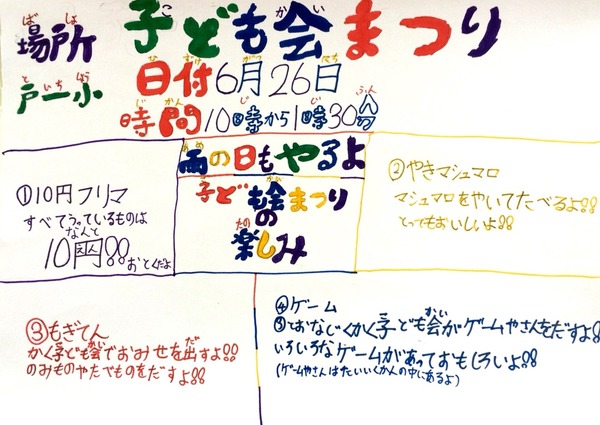 子ども会まつり
場所
戸一小
日付6月26日
時間10時から1時30分
雨の日もやるよ
子ども会まつり
の
楽しみ
①10円フリマ
すべてうっているものは
なんと
10円!!おとくだよ
②やきマシュマロ
マシュマロをやいてたべるよ!!
とってもおいしいよ!!
③もぎてん
かく子ども会でおみせを出すよ!!
のみものやたべものをだすよ!!
④ゲーム
③とおなじくかく子ども会がゲームやさんをだすよ!!
いろいろなゲームがあっておもしろいよ!!
(ゲームやさんはたいいくかんの中にあるよ)